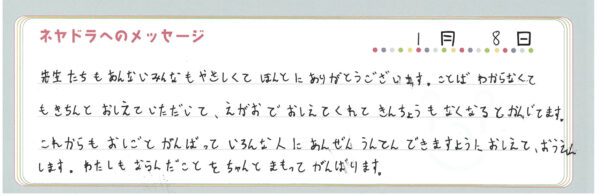 ネヤドラへのメッセージ
1月 8日
先生たちもあんないみんなもやさしくてほんとにありがとうございます。ことばわからなくて
もきちんとおしえていただいて、えがおでおしえてくれてきんちょうもなくなるとかんじてます。
これからもおしごとがんばっていろんな人にあんぜんうんてんできますようにおしえて、おうえん
します。わたしもならんだことをちゃんとまもってがんばります。